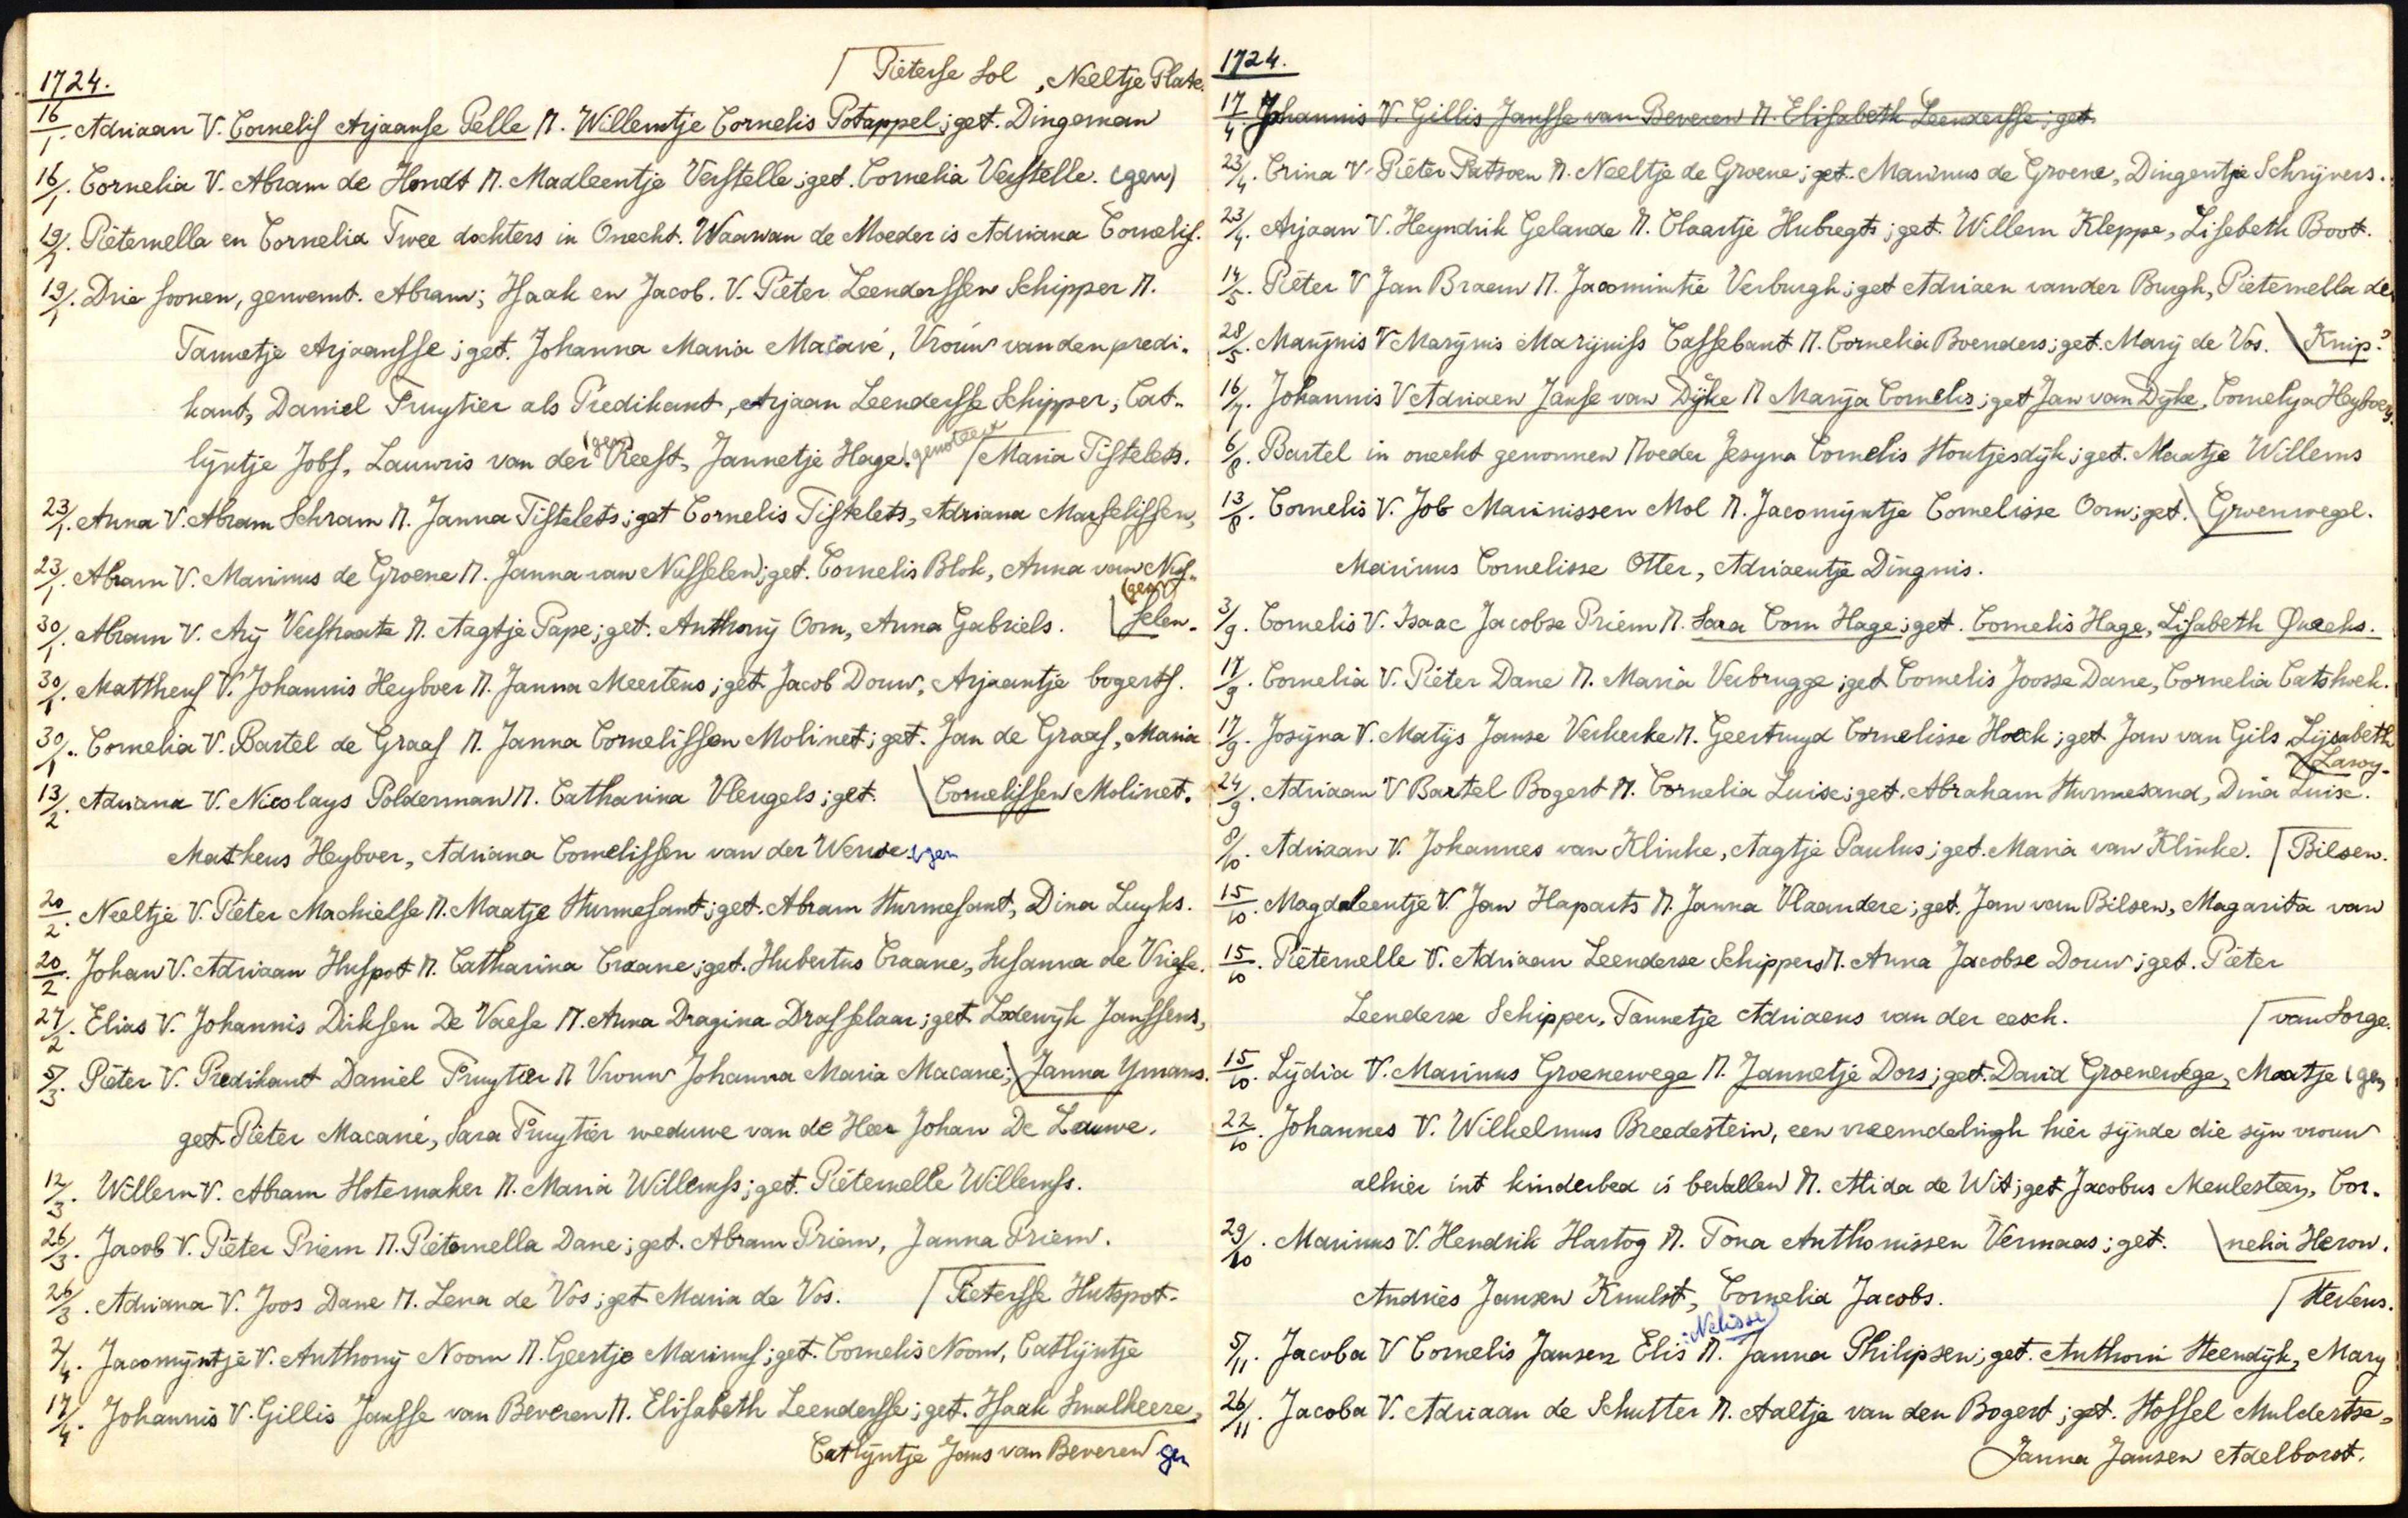 1724.
Pieterse Sol, Neeltje Plate.
16/1. Adriaan V. Cornelis Arjaanse Pelle M. Willemtje Cornelis Potappel; get. Dingeman
16/1. Cornelia V. Abram de Hondt M. Madleentje Verstelle; get. Cornelia Verstelle. (gen)
19/1. Pieternella en Cornelia Twee dochters in Onecht. Waarvan de Moeder is Adriana Cornelis.
19/1. Drie soonen, genoemt. Abram; Isaak en Jacob. V. Pieter Leenderssen Schipper M.
Tannetje Arjaansse; get. Johanna Maria Macaré, Vrouw van den predi-
kant, Daniel Fruytier als Predikant, Arjaan Leendersse Schipper, Cat-
lijntje Jobs, Lauwris van der (gen) Reest, Jannetje Hage. genoteert Maria Tistelets.
23/1. Anna V. Abram Schram M. Janna Tistelets; get Cornelis Tistelets, Adriana Marselissen,
23/1. Abram V. Marinus de Groene M. Janna van Nusselen; get. Cornelis Blok, Anna van Nus-
30/1. Abram V. Arij Verstraate M. Aagtje Pape; get. Anthonij Oom, Anna Gabriels. (gen) selen.
30/1. Mattheus V. Johannis Heyboer M. Janna Meertens; get Jacob Douw, Arjaantje bogerts.
30/1. Cornelia V. Bartel de Graaf M. Janna Cornelissen Molinet; get. Jan de Graaf, Maria
13/2. Adriana V. Nicolays Polderman M. Catharina Vleugels; get. Cornelissen Molinet.
Matheus Heyboer, Adriana Cornelissen van der Werve. gen
20/2. Neeltje V. Pieter Machielse M. Maatje Sturmesant; get. Abram Sturmesant, Dina Luyks.
20/2. Johan V. Adriaan Huspot M. Catharina Craane; get. Hubertus Craane, Susanna de Vriese.
27/2. Elias V. Johannis Diksen De Vaese M. Anna Dragina Drasselaar; get Lodewijk Janssens,
5/3. Pieter V. Predikant Daniel Fruytier M Vrouw Johanna Maria Macane; Janna Ymans.
get. Pieter Macané, Sara Fruytier weduwe van de Heer Johan De Leuwe.
12/3. Willem V. Abram Hotemaker M. Maria Willemss; get. Pieternelle Willemss.
26/3. Jacob V. Pieter Priem M. Pieternella Dane; get. Abram Priem, Janna Priem.
26/3. Adriana V. Joos Dane M. Lena de Vos; get Maria de Vos. Pietersse Hutspot.
2/4. Jacomijntje V. Anthonij Noom M. Geertje Marinus; get. Cornelis Noom, Catlijntje
17/4. Johannis V. Gillis Jansse van Beveren M. Elisabeth Leendersse; get. Isaak Smalheere,
Catlijntje Jans van Beveren gen
1724.
17/4. Johannis V. Gillis Jansse van Beveren M. Elisabeth Leendersse; get.
23/4. Crina V. Pieter Fatroen M. Neeltje de Groene; get. Marinus de Groene, Dingentje Schrijvers.
23/4. Arjaan V. Heyndrik Gelande M. Claartje Hubregts; get. Willem Kleppe, Lisebeth Boot.
14/5. Pieter V Jan Braem M. Jacomintie Verburgh; get Adriaen van der Burgh, Pieternella de
28/5. Marijnis V Marijnis Marijniss Cassebant M. Cornelia Boenders; get. Marij de Vos. Knip?
16/7. Johannis V Adriaen Janse van Dijke M Marija Cornelis; get Jan van Dijke, Cornelija Heyboer.
6/8. Bartel in onecht gewonnen Moeder Jesyna Cornelis Houtjesdijk; get. Maatje Willems
13/8. Cornelis V. Job Marinissen Mol M. Jacomijntje Cornelisse Oom; get. Groenwegel.
Marinus Cornelisse Otter, Adriaentje Dingnis.
3/9. Cornelis V. Isaac Jacobse Priem M. Sara Corn Hage; get. Cornelis Hage, Lisabeth Quaeks.
17/9. Cornelia V. Pieter Dane M. Maria Verbrugge; get Cornelis Joosse Dane, Cornelia Catshoek.
17/9. Josijna V. Matijs Janse Verkerke M. Geertruyd Cornelisse Hoek; get Jan van Gils, Lijsabeth
Lawy.
24/9. Adriaan V Bartel Bogert M. Cornelia Luise; get. Abraham Sturmesand, Dina Luise.
8/10. Adriaan V. Johannes van Klinke, Aagtje Paulus; get. Maria van Klinke. Bilsen.
15/10. Magdaleentje V. Jan Haparts M. Janna Vlaandere; get. Jan van Bilsen, Magarita van
15/10. Pieternelle V. Adriaan Leenderse Schippers M. Anna Jacobse Douw; get. Pieter
Leenderse Schipper, Tannetje Adriaens van der eesch. van Sorge.
15/10. Lydia V. Marinus Groenewege M. Jannetje Dors; get. David Groenewege, Maatje (gen
22/10. Johannes V. Wilhelmus Breedestein, een vreemdelingh hier sijnde die sijn vrouw
alhier int kinderbed is bevallen M. Alida de Wit; get Jacobus Meulesteen, Cor-
29/10. Marinus V. Hendrik Hartog M. Tona Anthonissen Vermaas; get. nelia Heron.
Andries Jansen Knulst, Cornelia Jacobs. Stevens.
Nelisse
5/11. Jacoba V Cornelis Jansen Elis M. Janna Philipsen; get. Anthoni Steendijk, Mary
26/11. Jacoba V. Adriaan de Schutter M. Aaltje van den Bogert; get. Stoffel Muldertse,
Janna Jansen Adelborst.